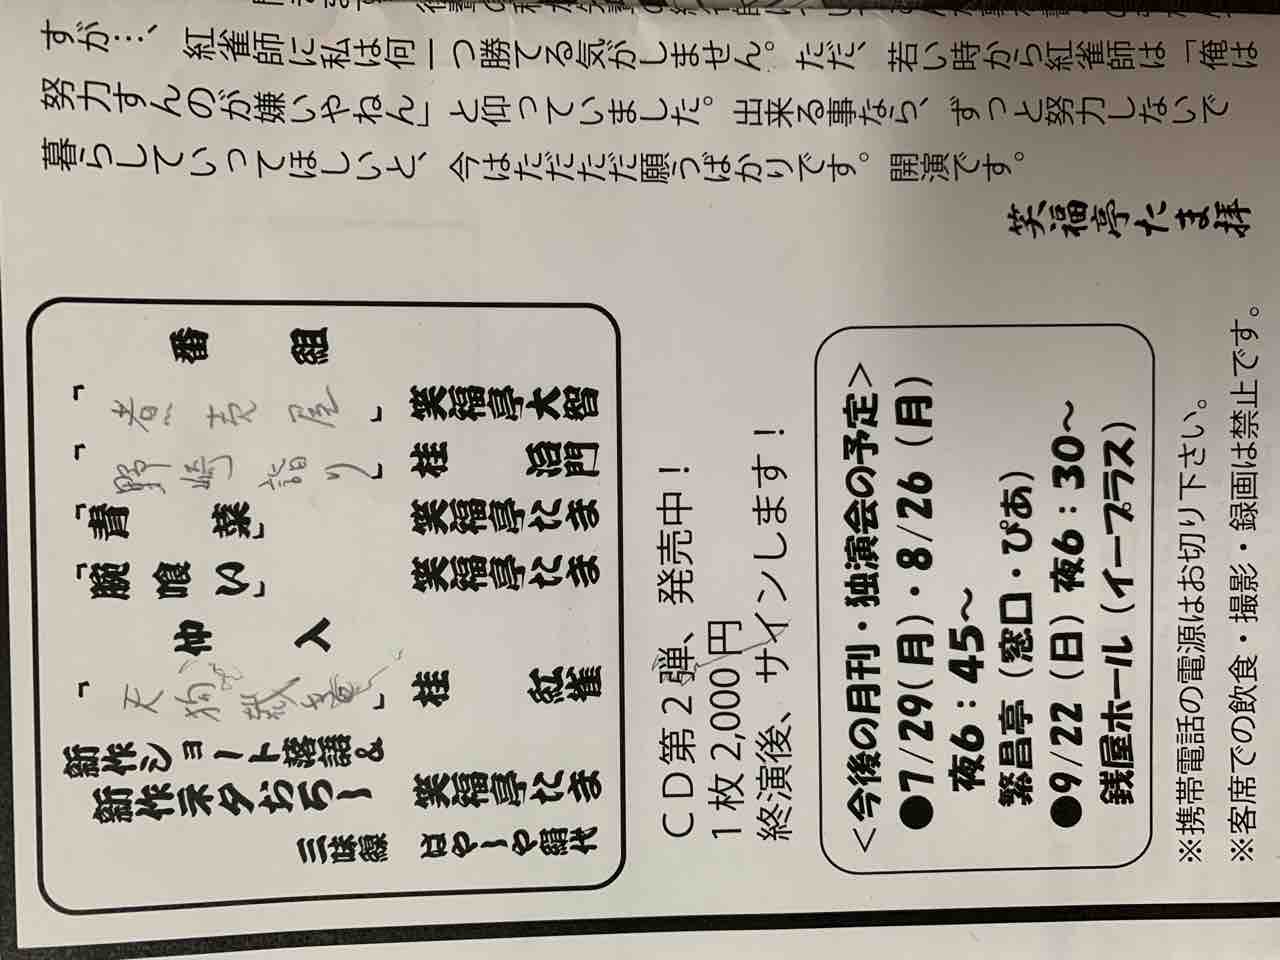 すが…、紅雀師に私は何一つ勝てる気がしません。ただ、若い時から紅雀師は「俺は
努力すんのが嫌いやねん」と仰っていました。出来る事なら、ずっと努力しないで
暮らしていってほしいと、今はただただ願うばかりです。開演です。
笑福亭たま拝
番組
「煮売屋」 笑福亭大智
「野崎詣り」 桂 治門
「青菜」 笑福亭たま
「腕喰い」 笑福亭たま
仲入
「天狗」 桂 紅雀
新作ショート落語&
新作ネタおろし 笑福亭たま
三味線 はやしや絹代
CD第2弾、発売中!
1枚2,000円
終演後、サインします!
<今後の月刊・独演会の予定>
●7/29(月)・8/26(月)
夜6:45~
繁昌亭(窓口・ぴあ)
●9/22(日)夜6:30~
銭屋ホール(イープラス)
※携帯電話の電源はお切り下さい。
※客席での飲食・撮影・録画は禁止です。